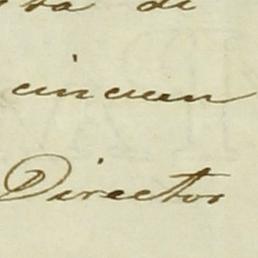 di
cincuen
Director